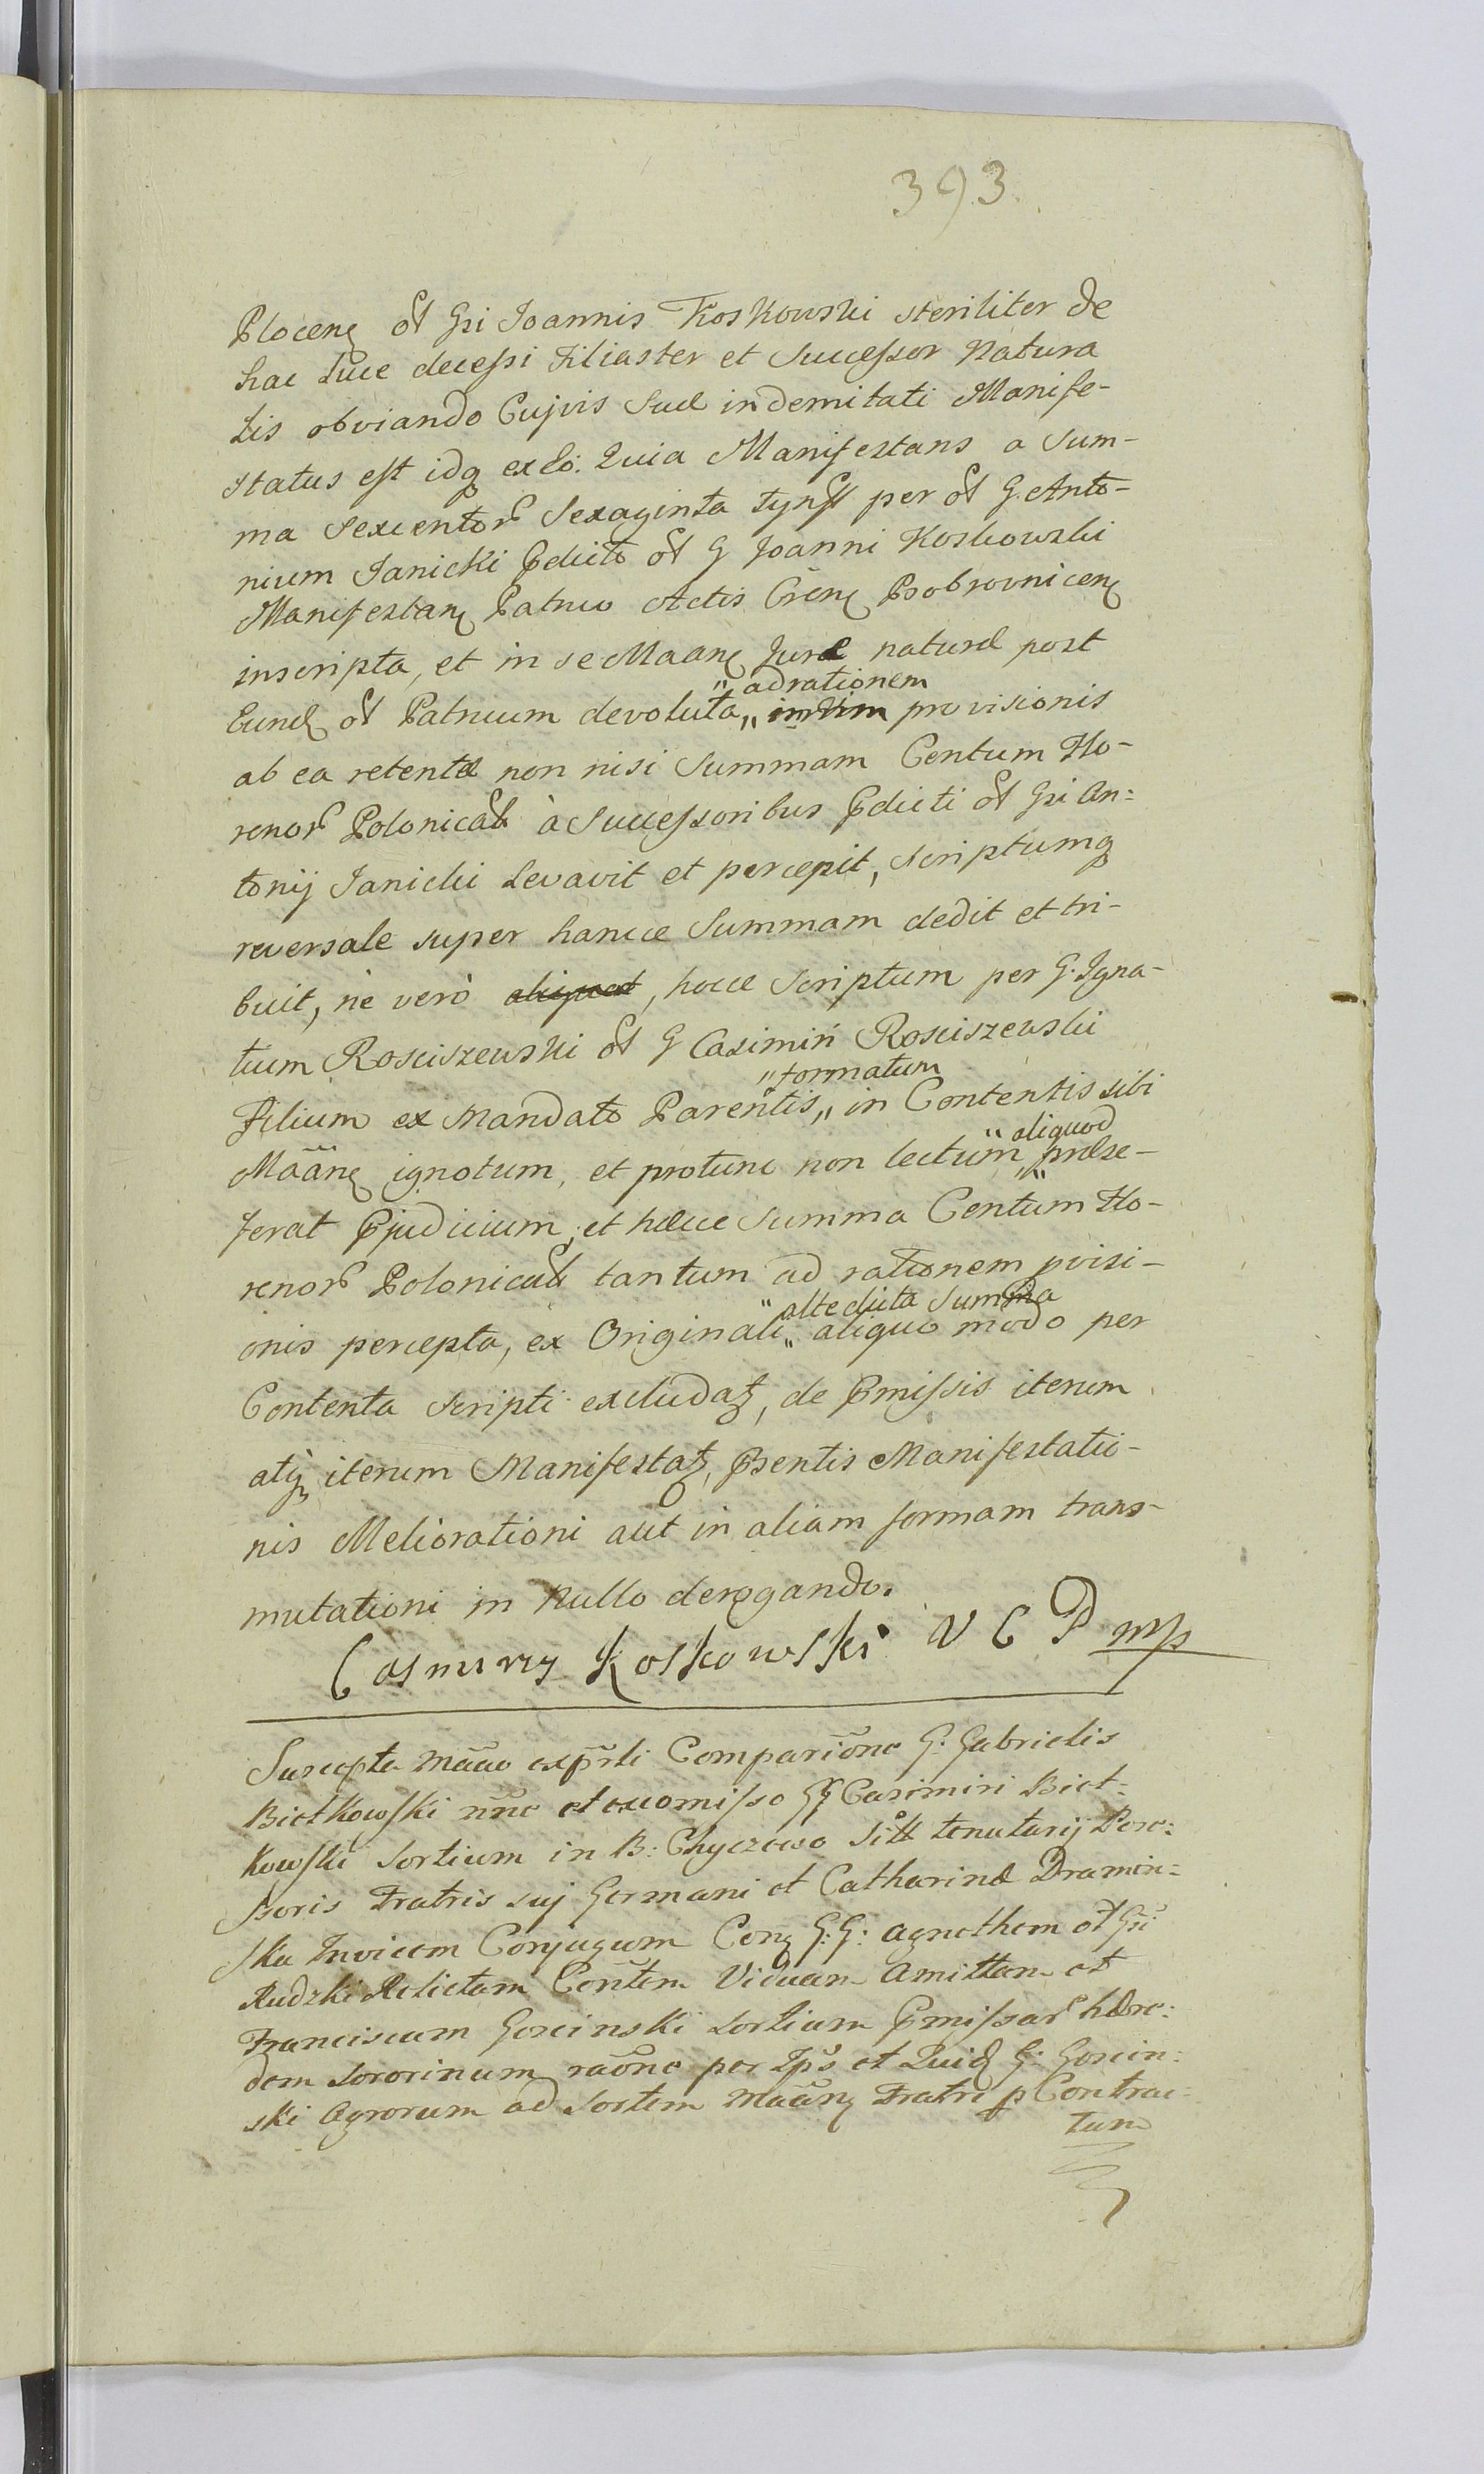 393.
Plocen̨ ol Gsi Joannis Koskowski steriliter de
hac Luce decessi Filiaster et Successor Natura
lis obviando Cujvis Suæ indemitati Manife-
status est idq̨ exeo: Quia Manifestans a Sum-
ma Sexcentor Sexaginta tynff per ol G. Anto-
nium Janicki Pdicto ol G Joanni Koskowski
Manifestan̨ Patruo Actis Cren̨ Bobrovnicen̨
inscripta, et in se Maan̨ Jure naturæ post
" ad rationem
Eund̨ ol Patruum devoluta „ provisionis
ab ea retentæ non nisi Summam Centum Flo-
renor Polonical à Successoribus Pdicti ol Gsi An:
tonij Janicki Levavit et percepit, scriptumq̨
reversale super hancce Summam dedit et tri-
buit, nè verò aliquod, hocce Scriptum per G. Igna-
tium Rosciszewski ol G Casimiri Rosciszewski
" formatum
Filium ex Mandato Parentis „ in Contentis sibi
" aliquod
Maãn̨ ignotum, et protunc non lectum „ præse-
ferat Pjudicium, et hæcce Summa Centum Flo-
renor Polonical tantum ad rationem pvisi-
" altedicta Summa
onis percepta, ex Originali „ aliquo modo per
Contenta Scripti excludaʒ, de Pmissis iterum
atq̨ iterum Manifestaʒ, Psentis Manifestatio-
nis Meliorationi aut in aliam formam trans-
mutationi in Nullo derogando.
Casmirry Koskowski V C P mp
Suscepta Mãao exprti Compariõne G: Gabrielis
Bietkowski nñe et Casimiri Biet:
kowski Sortium in B: Chyczewo Sitt tenutarij Posse:
ssoris Fratris suj Germani et Catharinæ Dramin:
ska Invicem Conjugum Con̨ G:G: Agnethem ol Gsi
Rudzki Relictam Contem Viduam Amittam et
Franciscum Goscinski Sortium Pmissar hære:
dem Sororinum raõne per Ips et Quid̨ G: Goscin:
ski Agrorum ad Sortem Maãn̨ Fratri p Contrac:
tum